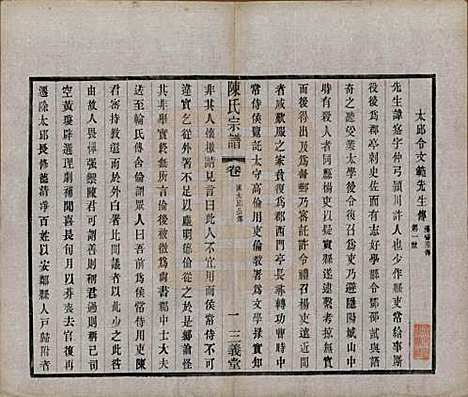 太邱令文範先生傳
第一世
先生諱寔字仲弓潁川許人也少作縣吏常給事厮
役後為郡亭刺史佐而有志好學縣令鄧邵試與語
奇之聽受業太學後令復召為吏乃避隱陽城山中
時有殺人者同縣楊吏以疑寔縣遂逮繫考掠無實
而後得出及為督郵乃密託許令禮召楊吏遠近聞
者咸歎服之家貧復為郡西門亭長尋轉功曹時中
常侍侯覽託太守高倫用吏倫教署為文學掾寔知
陳氏宗譜
卷
一
三義堂
非其人懷檄請見言曰此人不宜用而侯常侍不可
違寔乞從外署不足以塵明德倫從之於是鄉論怪
其非舉寔終無所言倫後被徵為尚書郡中士大夫
送至輪氏傳舍倫謂眾人曰吾前為侯常侍用吏陳
君密持教還而於外白署比聞議者以此少之此咎
由故人畏憚強禦陳君可謂善則稱君過則稱己司
空黃瓊辟選理劇補聞喜長旬月以朞喪去官復再
遷除太邱長修德清淨百姓以安鄰縣人戶歸附者